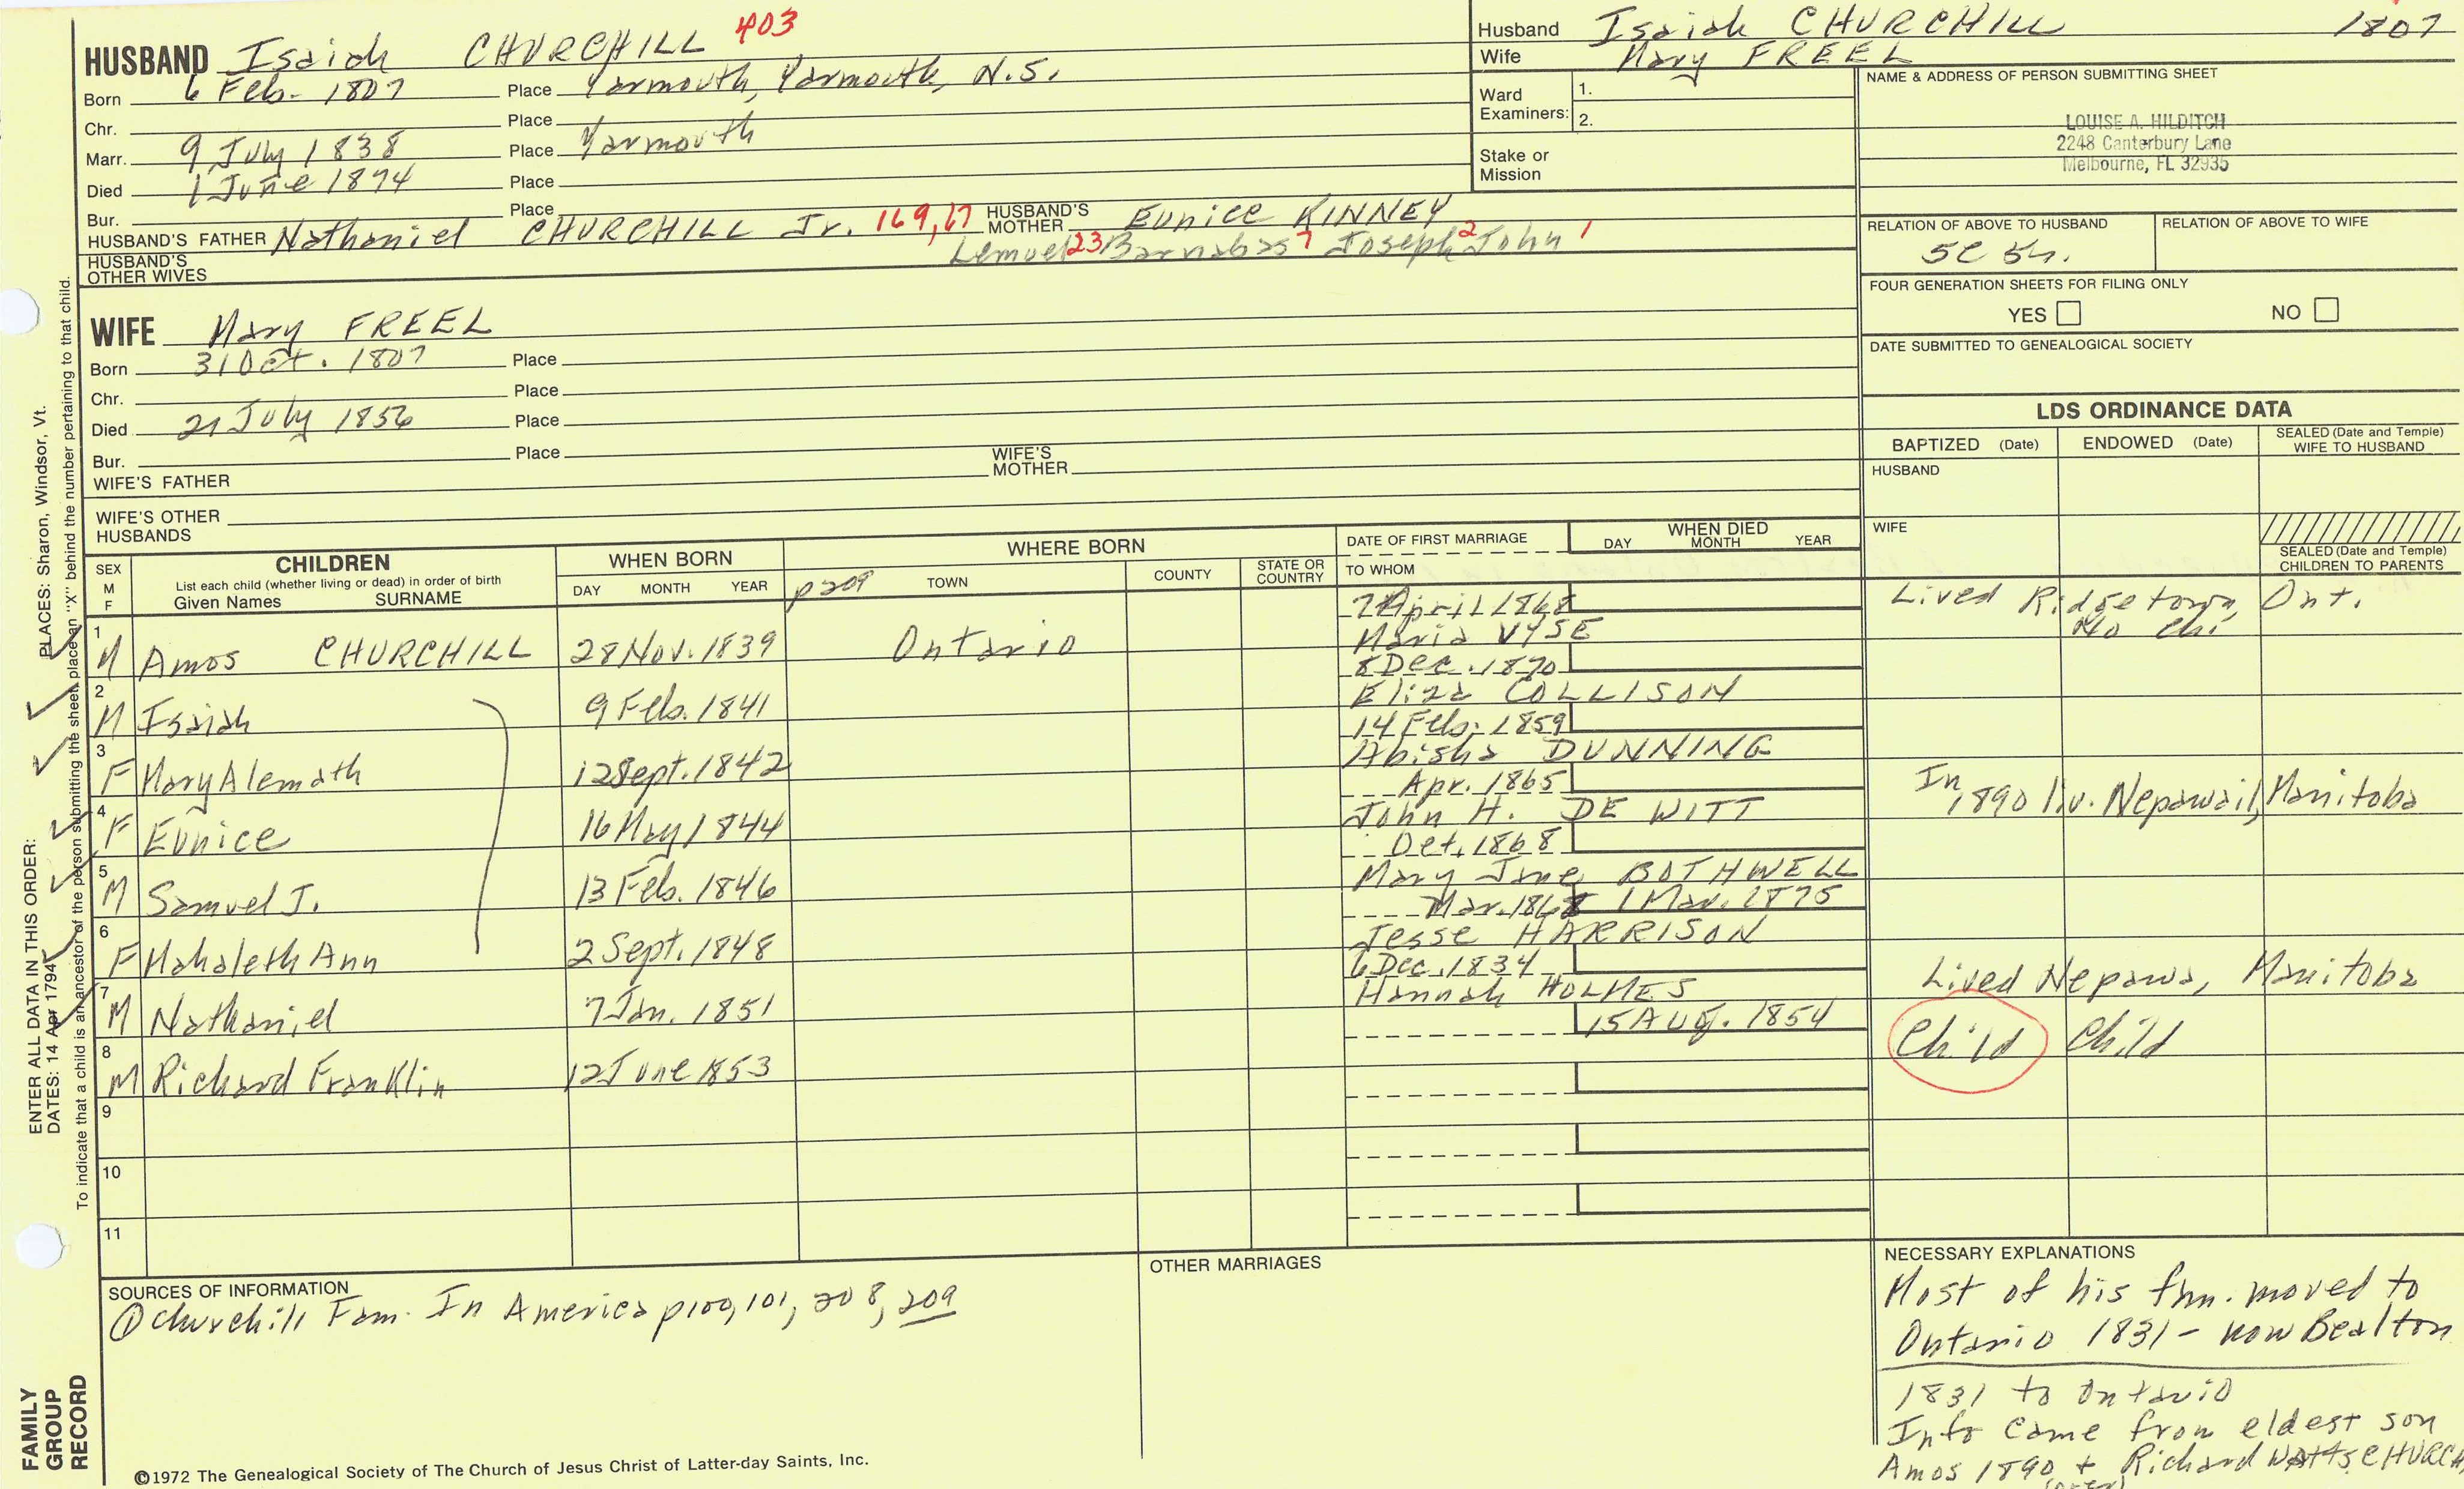 HUSBAND Isaiah CHURCHILL 403
Born 6 Feb. 1807 Place Yarmouth, Yarmouth, N.S.
Chr. Place
Marr. 9 July 1838 Place Yarmouth
Died 1 June 1874 Place
Bur. Place
HUSBAND'S FATHER Nathaniel CHURCHILL Jr. 169, 67 HUSBAND'S MOTHER Eunice KINNEY
Lemuel 23 Barnabas 7 Joseph 2 John 1
HUSBAND'S OTHER WIVES
Husband Isaiah CHURCHILL 1807
Wife Mary FREEL
Ward Examiners: 1.
2.
Stake or Mission
NAME & ADDRESS OF PERSON SUBMITTING SHEET
LOUISE A. HILDITCH
2248 Canterbury Lane
Melbourne, FL 32935
RELATION OF ABOVE TO HUSBAND RELATION OF ABOVE TO WIFE
5C
FOUR GENERATION SHEETS FOR FILING ONLY
YES NO
DATE SUBMITTED TO GENEALOGICAL SOCIETY
WIFE Mary FREEL
Born 31 Oct. 1807 Place
Chr. Place
Died 21 July 1856 Place
Bur. Place
WIFE'S FATHER WIFE'S MOTHER
WIFE'S OTHER HUSBANDS
LDS ORDINANCE DATA
BAPTIZED (Date) ENDOWED (Date) SEALED (Date and Temple) WIFE TO HUSBAND
HUSBAND
WIFE
SEALED (Date and Temple) CHILDREN TO PARENTS
SEX M F
CHILDREN
List each child (whether living or dead) in order of birth
Given Names SURNAME
WHEN BORN
DAY MONTH YEAR
WHERE BORN
p209 TOWN COUNTY STATE OR COUNTRY
DATE OF FIRST MARRIAGE
TO WHOM
WHEN DIED
DAY MONTH YEAR
1 M Amos CHURCHILL 28 Nov. 1839 Ontario 7 April 1868 Maria VYSE Lived Ridgetown, Ont. No Chi
2 M Isaiah 9 Feb. 1841 8 Dec. 1870 Eliza COLLISON
3 F Mary Alemath 12 Sept. 1842 14 Feb. 1859 Abisha DUNNING
4 F Eunice 16 May 1844 Apr. 1865 John H. DE WITT In 1890 liv. Nepawail, Manitoba
5 M Samuel J. 13 Feb. 1846 Oct. 1868 Mary Jane BOTHWELL
6 F Mahaleth Ann 2 Sept. 1848 Mar. 1868 1 Mar. 1875 Jesse HARRISON
7 M Nathaniel 7 Jan. 1851 6 Dec. 1834 Hannah HOLMES Lived Nepawa, Manitoba
8 M Richard Franklin 12 June 1853 15 Aug. 1854 Child Child
9
10
11
SOURCES OF INFORMATION
① Churchill Fam. In America p100, 101, 208, 209
OTHER MARRIAGES
NECESSARY EXPLANATIONS
Most of his fam. moved to
Ontario 1831 - now Bealton
1831 to Ontario
Info came from eldest son
Amos 1890 + Richard Watts CHURCH
(over)
©1972 The Genealogical Society of The Church of Jesus Christ of Latter-day Saints, Inc.
FAMILY GROUP RECORD
ENTER ALL DATA IN THIS ORDER:
DATES: 14 Apr 1794
PLACES: Sharon, Windsor, Vt.
To indicate that a child is an ancestor of the person submitting the sheet, place an "X" behind the number pertaining to that child.